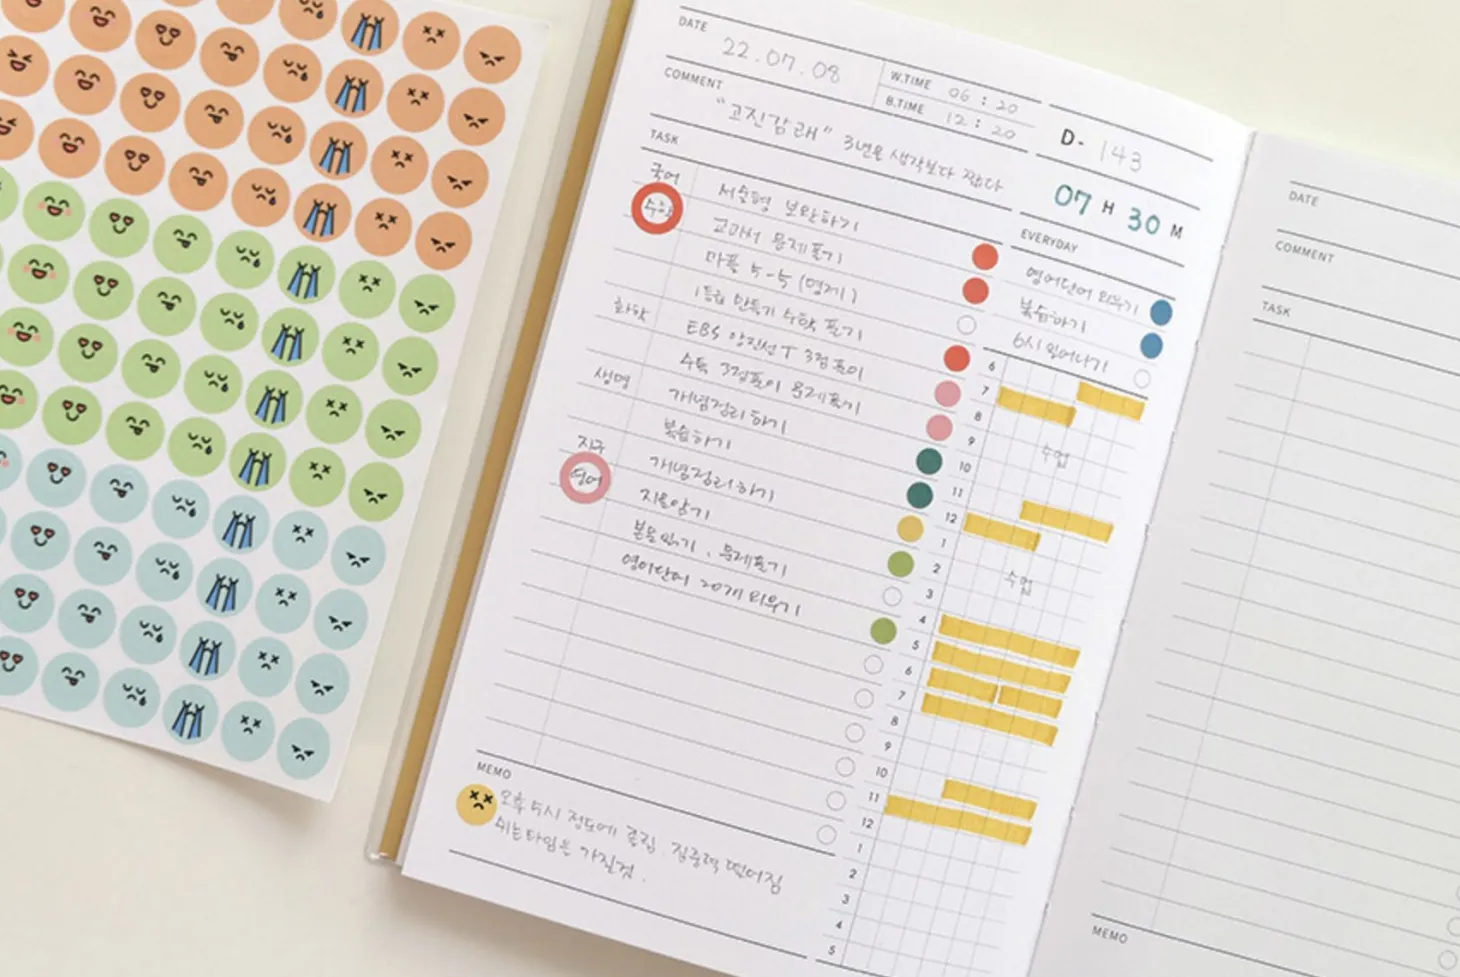 DATE 22.07.08
W.TIME 06 : 20
B.TIME 12 : 20
COMMENT
"고진감래" 3년은 생각보다 짧다
D- 143
07 H 30 M
TASK
국어 서술형 보완하기
수학 교과서 문제풀기
마플 4-5 (명제)
1등급 만들기 수학 풀기
화학 EBS 양진석T 3점풀이
수특 3점풀이 문제풀기
생명 개념정리하기
복습하기
지구 개념정리하기
지문읽기
본문읽기, 문제풀기
영어단어 20개 외우기
EVERYDAY
영어단어 외우기
복습하기
6시 일어나기
6
7
8
9
수업
10
11
12
1
2
수업
3
4
5
6
7
8
9
10
11
12
1
2
3
4
5
MEMO
오후 4시 정도에 졸림. 집중력 떨어짐
쉬는타임을 가질것.
DATE
COMMENT
TASK
MEMO